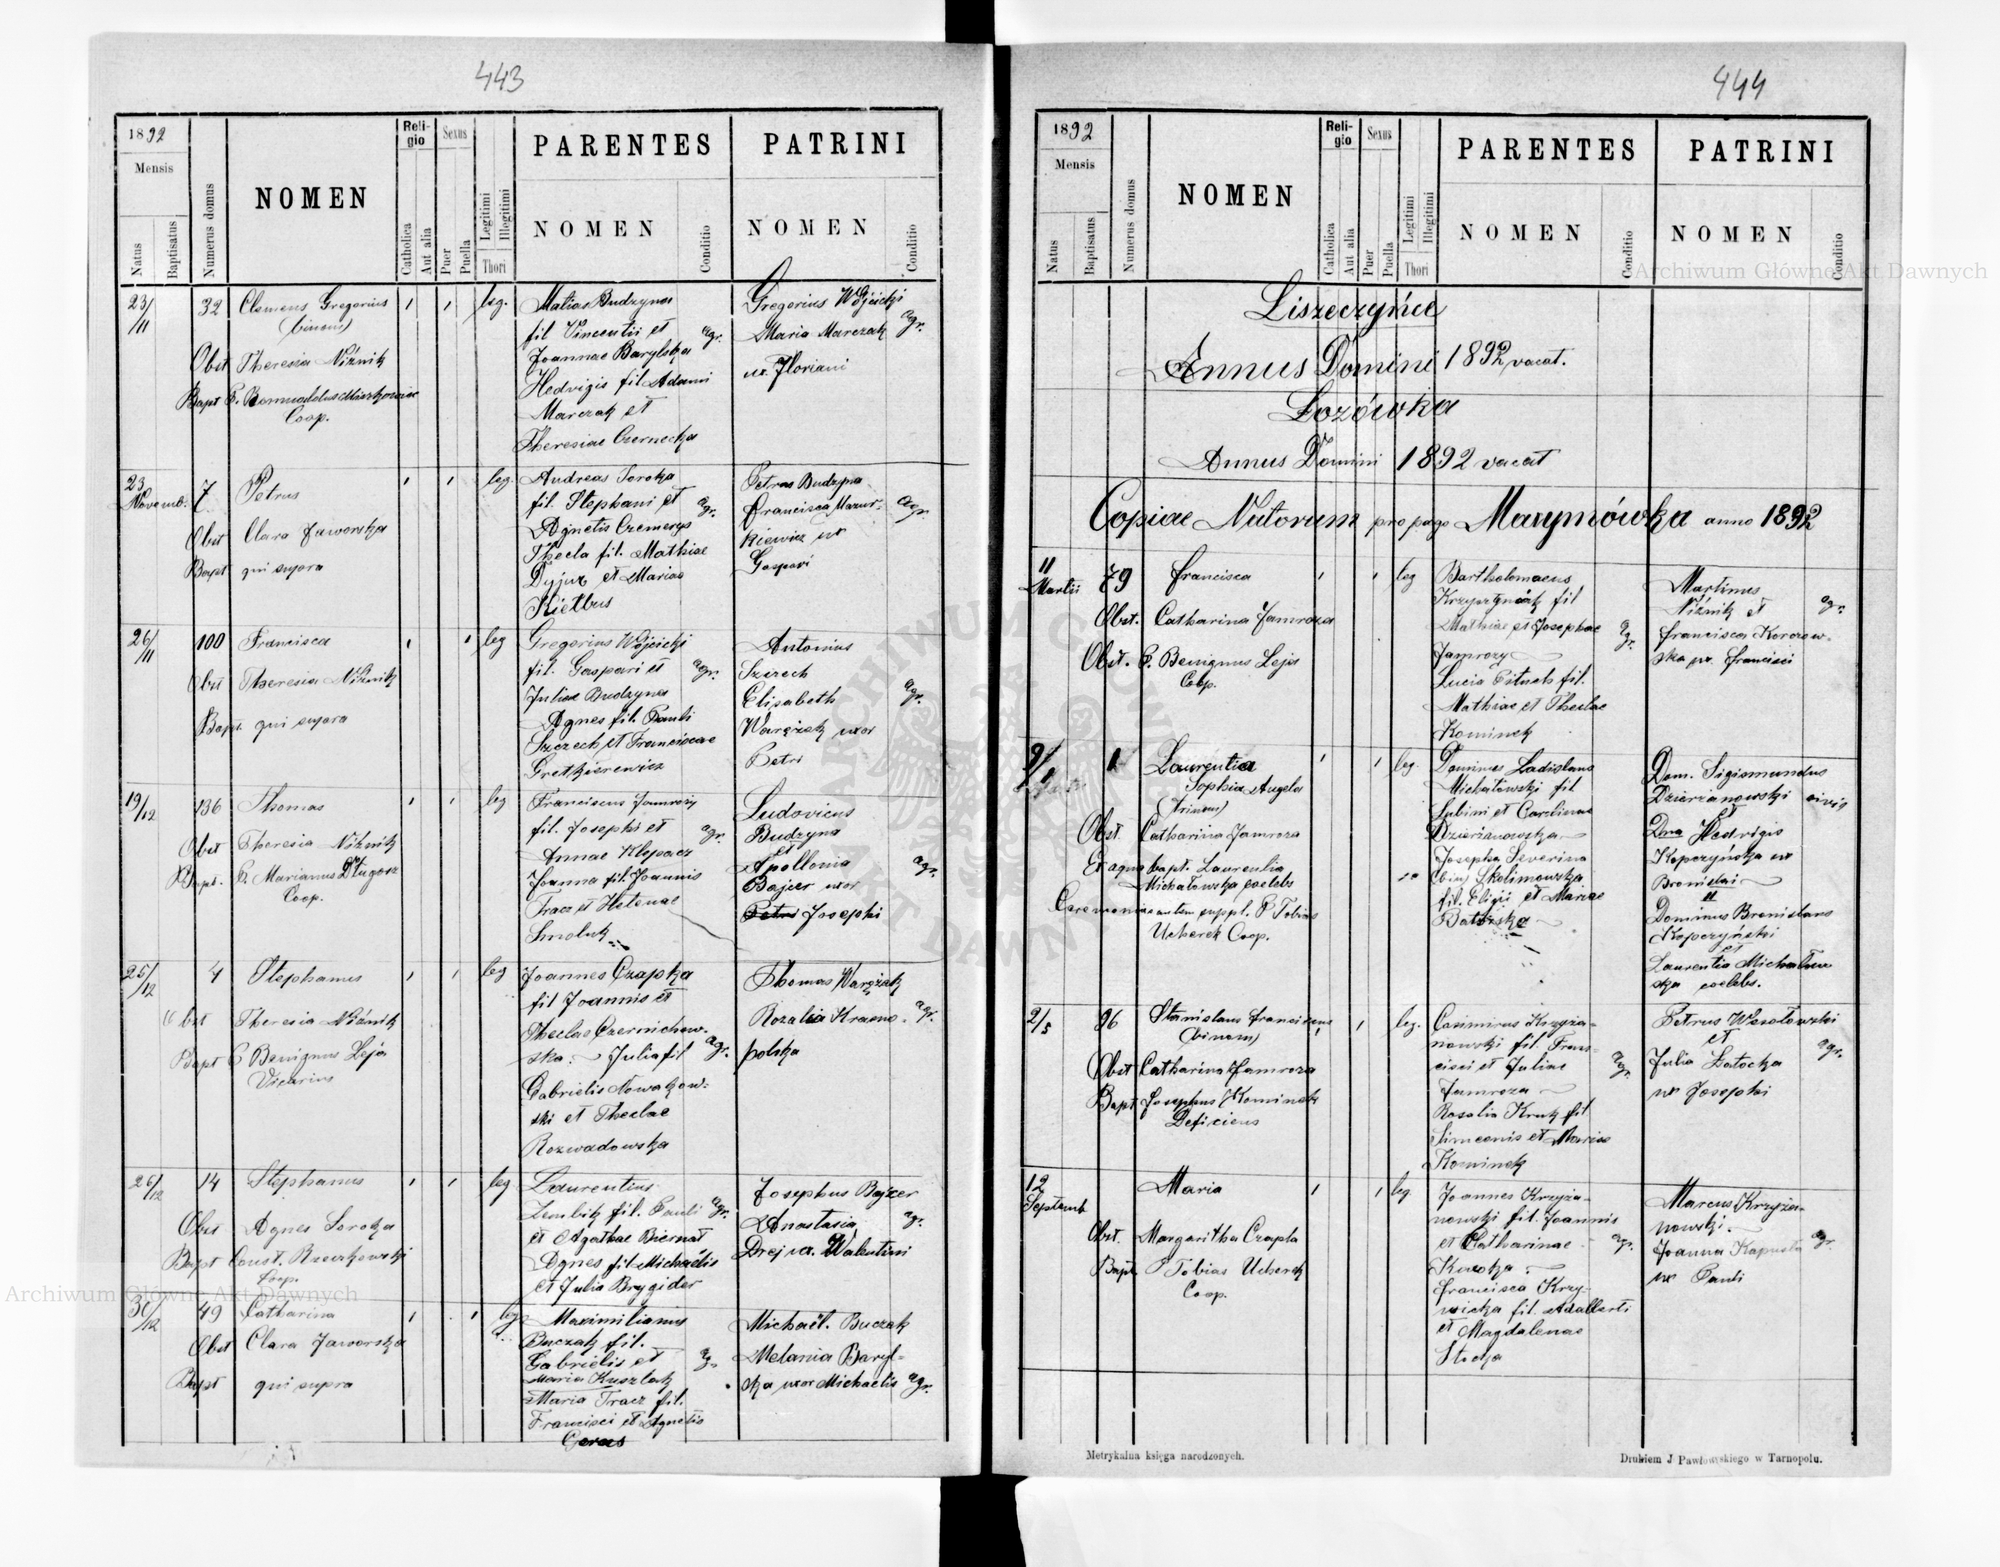 443
1892
Mensis
Natus
Baptisatus
Numerus domus
NOMEN
Religio
Catholica
Aut alia
Sexus
Puer
Puella
Legitimi
Illegitimi
Thori
PARENTES
NOMEN
Conditio
PATRINI
NOMEN
Conditio
23/11 32 Clemens Gregorius leg.
(binom)
Obst Theresia Niżnik
Bapt P. Romualdus
Coop.
Matias Budzyna
fil Vincentii et agr.
Joannae Barylska
Hedvigis fil Adami
Marczak et
Theresiae Czernecka
Gregorius Wójcicki
Maria Marczak agr.
ux. Floriani
23 Novemb. 7 Petrus leg.
Obst Clara Jaworska
Bapt qui supra
Andreas Soroka
fil. Stephani et agr.
Agnetis Czemerys
Thecla fil. Mathiae
et Mariae
Kiełbus
Petrus Budzyna
Francisca Mazur- agr.
kiewicz ux
Gaspari
26/11 100 Francisca leg
Obst Theresia Niżnik
Bapt. qui supra
Gregorius Wójcicki
fil. Gaspari et agr.
Juliae Budzyna
Agnes fil. Pauli
Szczech et Franciscae
Gretkierewicz
Antonius
Szczech
Elisabeth agr.
Warężak uxor
Petri
19/12 136 Thomas leg
Obst Theresia Niżnik
Bapt. P. Marianus Długosz
Coop.
Franciscus Jamroży
fil. Josephi et agr.
Annae Klepacz
Joanna fil. Joannis
Tracz et Helenae
Smoluk
Ludovicus
Budzyna
et
Apollonia agr.
Bajzer uxor
Petri Josephi
25/12 4 Stephanus leg
Obst Theresia Niżnik
Bapt P Benignus Leja
Vicarius
Joannes Czapka
fil Joannis et
Theclae Czernichow-
ska. Julia fil agr.
Gabrielis Nowakow-
ski et Theclae
Rozwadowska
Thomas Warężak
Rozalia Krasno- agr.
polska
26/12 14 Stephanus leg
Obst Agnes Soroka
Bapt Const. Rzeczkowski
Coop.
Laurentius
Zembik fil. Pauli agr.
et Agathae Biernat
Agnes fil Michaelis
et Julia Brygider
Josephus Bajzer
Anastasia agr.
Drej ux. Walentini
30/12 49 Catharina leg
Obst Clara Jaworska
Bapt qui supra
Maximilianus
Buczak fil.
Gabrielis et ag.
Maria Kuszlak
Maria Tracz fil.
Francisci et Agnetis
Geras
Michaël. Buczak
Melania Baryl-
ska uxor Michaelis agr.
444
1892
Mensis
Natus
Baptisatus
Numerus domus
NOMEN
Religio
Catholica
Aut alia
Sexus
Puer
Puella
Legitimi
Illegitimi
Thori
PARENTES
NOMEN
Conditio
PATRINI
NOMEN
Conditio
Liszeczyńce
Annus Domini 1892 vacat.
Łozówka
Annus Domini 1892 vacat
Copiae Natorum pro pago Marymówka anno 1892
11 Martii 79 Francisca leg
Obst. Catharina Jamroza
Obst. P. Benignus Leja
Coop.
Bartholomaeus
fil
Mathiae et Josephae agr.
Jamrozy
Lucia fil.
Mathiae et Theclae
Kominek
Martinus
Niżnik et agr.
Francisca Korzow-
ska ux. Francisci
9/1 1 Laurentia leg.
Sophia Angela
(trinom)
Obst. Catharina Jamroza
Et aqua bapt. Laurentia
Michałowska coelebs
Caeremonias autem suppl. P Tobias
Ucherek Coop.
Dominus Ladislaus
Michałowski fil
Sabini et Carolinae
Dzierżanowska
Josepha Severina
(bin) Skolimowska
fil. Eligii et Mariae
Batorska
Dom. Sigismundus
Dzierżanowski civis
et
Dna Hedvigis
Kopczyńska ux
Bronislai
Dominus Bronislaus
Kopczyński
et
Laurentia Michałow
ska coelebs.
2/5 96 Stanislaus Franciscus leg.
(binom)
Obst Catharina Jamroza
Bapt Josephus Kominek
Deficiens
Casimirus Krzyża-
nowski fil. Fran-
cisci et Juliae agr.
Jamroza
Rosalia Kruk fil
Simeonis et Mariae
Kominek
Petrus Wesołowski
et
Julia Łatocka agr.
ux Josephi
12 Septemb Maria leg.
Obst. Margaritha Czapla
Bapt. P Tobias Ucherek
Coop.
Joannes Krzyża-
nowski fil. Joannis
et Catharinae agr.
Francisca Krzy-
wicka fil. Adalberti
et Magdalenae
Stocka
Marcus Krzyża-
nowski.
Joanna Kapusta agr.
ux Pauli
Metrykalna księga narodzonych.
Drukiem J Pawłowskiego w Tarnopolu.
Archiwum Główne Akt Dawnych
Archiwum Główne Akt Dawnych
ARCHIWUM GŁÓWNE AKT DAWNYCH